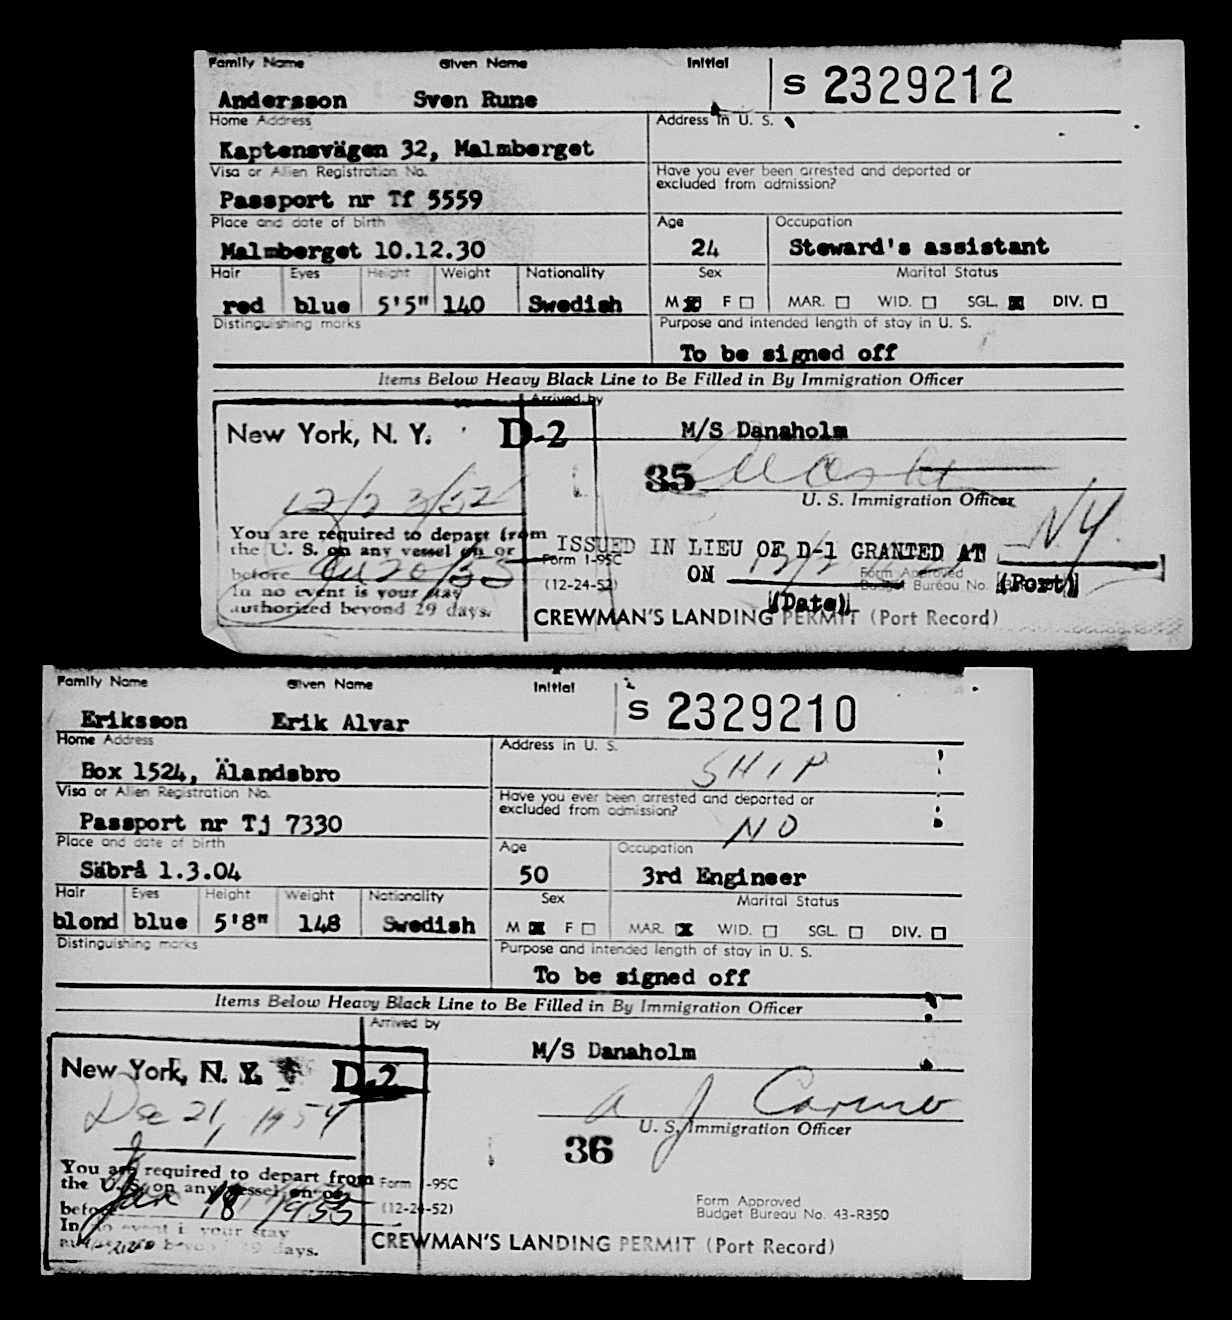 Family Name Given Name Initial
S 2329212
Andersson Sven Rune
Home Address Address in U. S.
Kaptensvägen 32, Malmberget
Visa or Alien Registration No. Have you ever been arrested and deported or
excluded from admission?
Passport nr Tf 5559
Place and date of birth Age Occupation
Malmberget 10.12.30 24 Steward's assistant
Hair Eyes Height Weight Nationality Sex Marital Status
red blue 5'5" 140 Swedish M F MAR. WID. SGL. DIV.
Distinguishing marks Purpose and intended length of stay in U. S.
To be signed off
Items Below Heavy Black Line to Be Filled in By Immigration Officer
Arrived by
New York, N. Y. D-2 M/S Danaholm
12/23/52 35
U. S. Immigration Officer
You are required to depart from
the U. S. on any vessel on or
before
In no event is your stay
authorized beyond 29 days.
ISSUED IN LIEU OF D-1 GRANTED AT N.Y.
Form I-95C Form Approved
(12-24-52) ON Budget Bureau No. (Port)
(Date)
CREWMAN'S LANDING PERMIT (Port Record)
Family Name Given Name Initial
S 2329210
Eriksson Erik Alvar
Home Address Address in U. S.
Box 1524, Älandsbro SHIP
Visa or Alien Registration No. Have you ever been arrested and deported or
excluded from admission?
Passport nr Tj 7330 NO
Place and date of birth Age Occupation
Säbrå 1.3.04 50 3rd Engineer
Hair Eyes Height Weight Nationality Sex Marital Status
blond blue 5'8" 148 Swedish M F MAR. WID. SGL. DIV.
Distinguishing marks Purpose and intended length of stay in U. S.
To be signed off
Items Below Heavy Black Line to Be Filled in By Immigration Officer
Arrived by
New York, N. Y. D-2 M/S Danaholm
Dec 21, 1954
U. S. Immigration Officer
36
You are required to depart from
the U. S. on any vessel on or
before Jan 18 1955
In no event is your stay
authorized beyond 29 days.
Form I-95C Form Approved
(12-24-52) Budget Bureau No. 43-R350
CREWMAN'S LANDING PERMIT (Port Record)